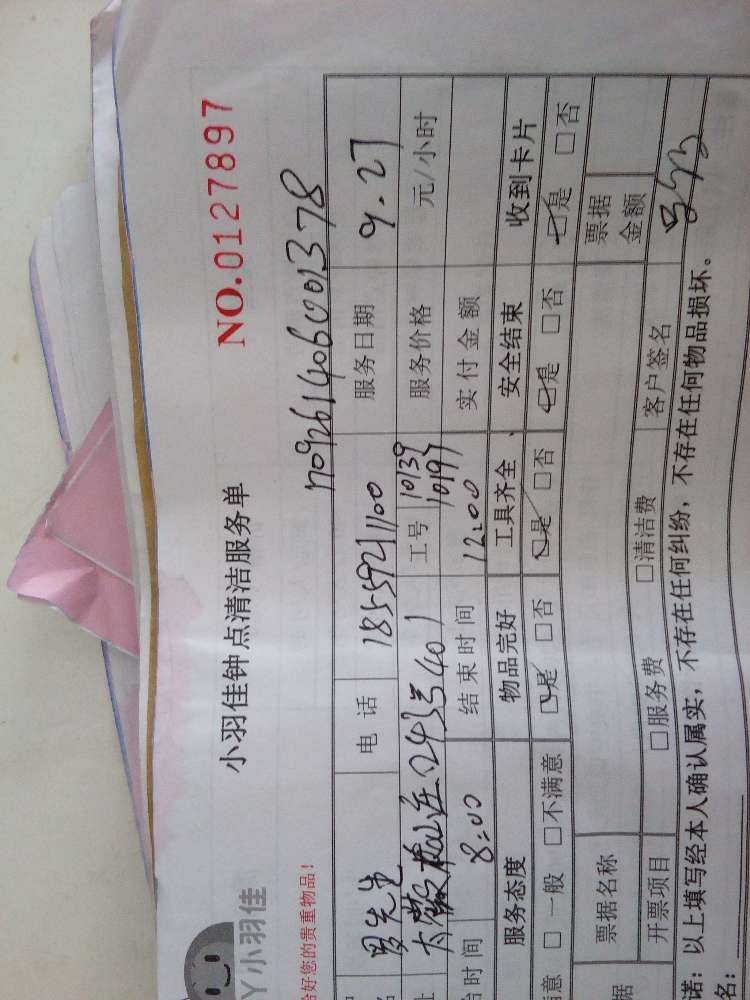 小羽佳钟点清洁服务单
NO.0127897
小羽佳
给好您的贵重物品！
n0926140601001378
罗先生 电 话 18559211100 服务日期 9.27
243号401 工号 10139 10197 服务价格 元/小时
时间 8:00 结束时间 12:00 实付金额
服务态度 物品完好 工具齐全 安全结束 收到卡片
意 □ 一般 □不满意 □是 □否 □是 □否 □是 □否 □是 □否
据 票据名称 票据
金额
开票项目 □服务费 □清洁费 客户签名
诺：以上填写经本人确认属实，不存在任何纠纷，不存在任何物品损坏。
名：